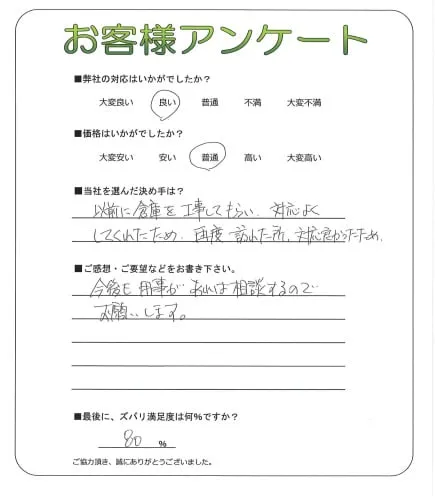 お客様アンケート
■弊社の対応はいかがでしたか？
大変良い 良い 普通 不満 大変不満
■価格はいかがでしたか？
大変安い 安い 普通 高い 大変高い
■当社を選んだ決め手は？
以前に倉庫を工事してもらい、対応よく
してくれたため、再度訪れた所、対応良かったため、
■ご感想・ご要望などをお書き下さい。
今後も用事があれば相談するので
お願いします。
■最後に、ズバリ満足度は何%ですか？
80 %
ご協力頂き、誠にありがとうございました。